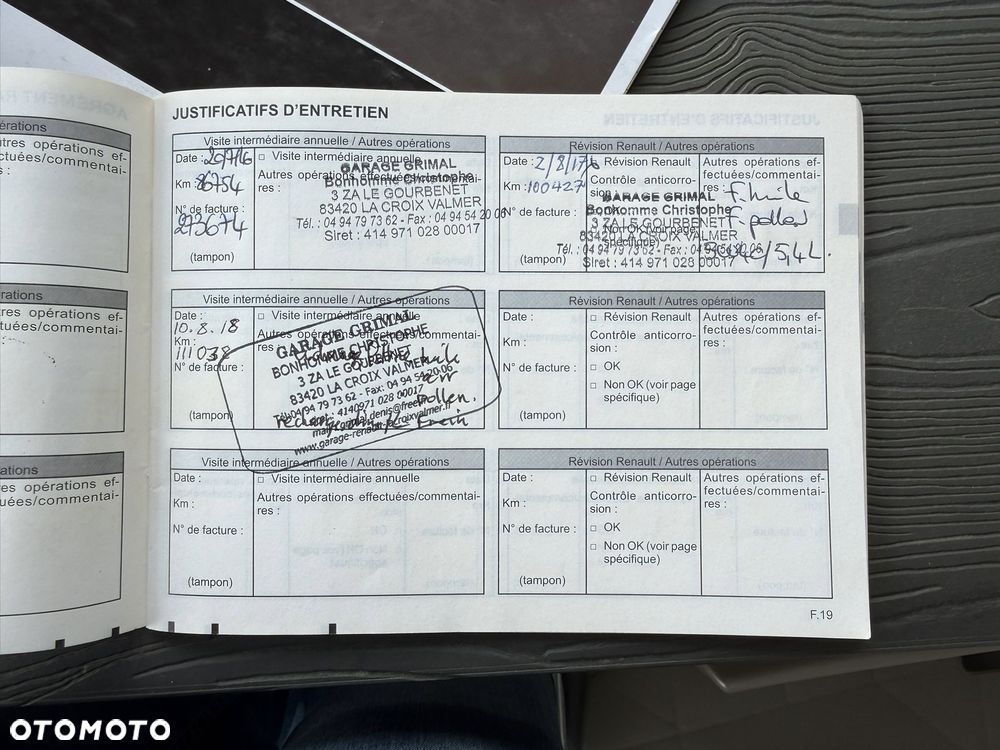 JUSTIFICATIFS D'ENTRETIEN
érations
tres opérations ef-
ectuées/commentai-
:
Visite intermédiaire annuelle / Autres opérations
Date : 20/7/16
Km : 86754
N° de facture :
273674
(tampon)
□ Visite intermédiaire annuelle
Autres opérations effectuées/commentai-
res :
GARAGE GRIMAL
Bonhomme Christophe
3 ZA LE GOURBENET
83420 LA CROIX VALMER
Tél. : 04 94 79 73 62 - Fax : 04 94 54 20 06
Siret : 414 971 028 00017
Révision Renault / Autres opérations
Date : 2/8/17
Km : 100427
N° de facture :
(tampon)
□ Révision Renault
Contrôle anticorro-
sion :
Non OK (voir page
spécifique)
GARAGE GRIMAL
Bonhomme Christophe
3 ZA LE GOURBENET
83420 LA CROIX VALMER
Tél. : 04 94 79 73 62 - Fax : 04 94 54 20 06
Siret : 414 971 028 00017
Autres opérations ef-
fectuées/commentai-
res :
f. huile
f. pollen
5,4L.
rations
es opérations ef-
tuées/commentai-
Visite intermédiaire annuelle / Autres opérations
Date :
10.8.18
Km :
111038
N° de facture :
(tampon)
□ Visite intermédiaire annuelle
Autres opérations effectuées/commentai-
res
GARAGE GRIMAL
BONHOMME CHRISTOPHE
3 ZA LE GOURBENET
83420 LA CROIX VALMER
Tél : 04 94 79 73 62 - Fax: 04 94 54 20 06
huile
air
pollen.
frein
www.garage-renault-lacroixvalmer.fr
Révision Renault / Autres opérations
Date :
Km :
N° de facture :
(tampon)
□ Révision Renault
Contrôle anticorro-
sion :
□ OK
□ Non OK (voir page
spécifique)
Autres opérations ef-
fectuées/commentai-
res :
ations
es opérations ef-
uées/commentai-
Visite intermédiaire annuelle / Autres opérations
Date :
Km :
N° de facture :
(tampon)
□ Visite intermédiaire annuelle
Autres opérations effectuées/commentai-
res :
Révision Renault / Autres opérations
Date :
Km :
N° de facture :
(tampon)
□ Révision Renault
Contrôle anticorro-
sion :
□ OK
□ Non OK (voir page
spécifique)
Autres opérations ef-
fectuées/commentai-
res :
F.19
OTOMOTO